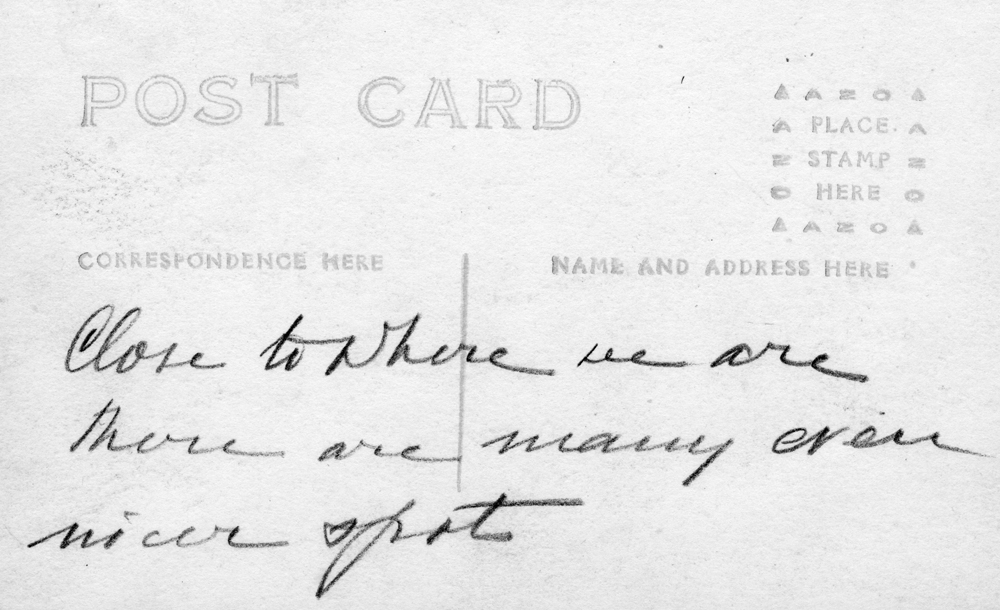 POST CARD
▲ A Z O ▲
A PLACE A
Z STAMP Z
O HERE O
▲ A Z O ▲
CORRESPONDENCE HERE
NAME AND ADDRESS HERE
Close to where we are
there are many even
nicer spots